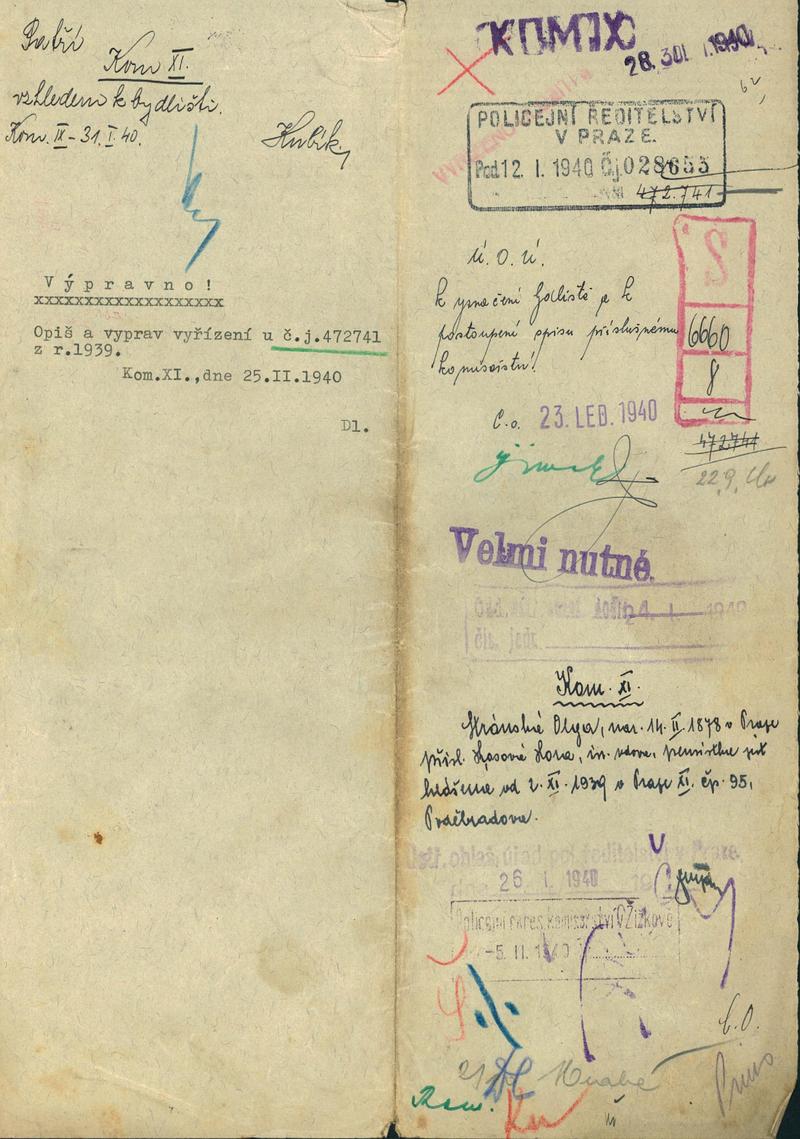 Patří
Kom XI.
vzhledem k bydlišti.
Kom. IX - 31. I. 40.
Kubík
Výpravno!
xxxxxxxxxxxxxxxxxxx
Opiš a vyprav vyřízení u č.j.472741
z r.1939.
Kom.XI.,dne 25.II.1940
Dl.
KOM IX
28. 1940
POLICEJNÍ ŘEDITELSTVÍ
V PRAZE.
Pod 12. I. 1940 Čj 028655
472.741
Ú. O. Ú.
k vyznačení bydliště a k
postoupení spisu příslušnému
komisařství.
6660
8
C.o. 23. LED. 1940
472741
22.9.
Velmi nutné.
24. I. 1940
čís. jedn.
Kom. XI.
Olga, nar. 14. II. 1878 v Praze
přísl. Kosová Hora, vdova, penistka jest
hlášena od 2. XI. 1939 v Praze XI. čp. 95,
Poděbradova.
Ústř. ohlaš. úřad pol. ředitelství v Praze.
dne 26 I. 1940
Policejní okres. komisařství v Žižkově
-5. II. 1940